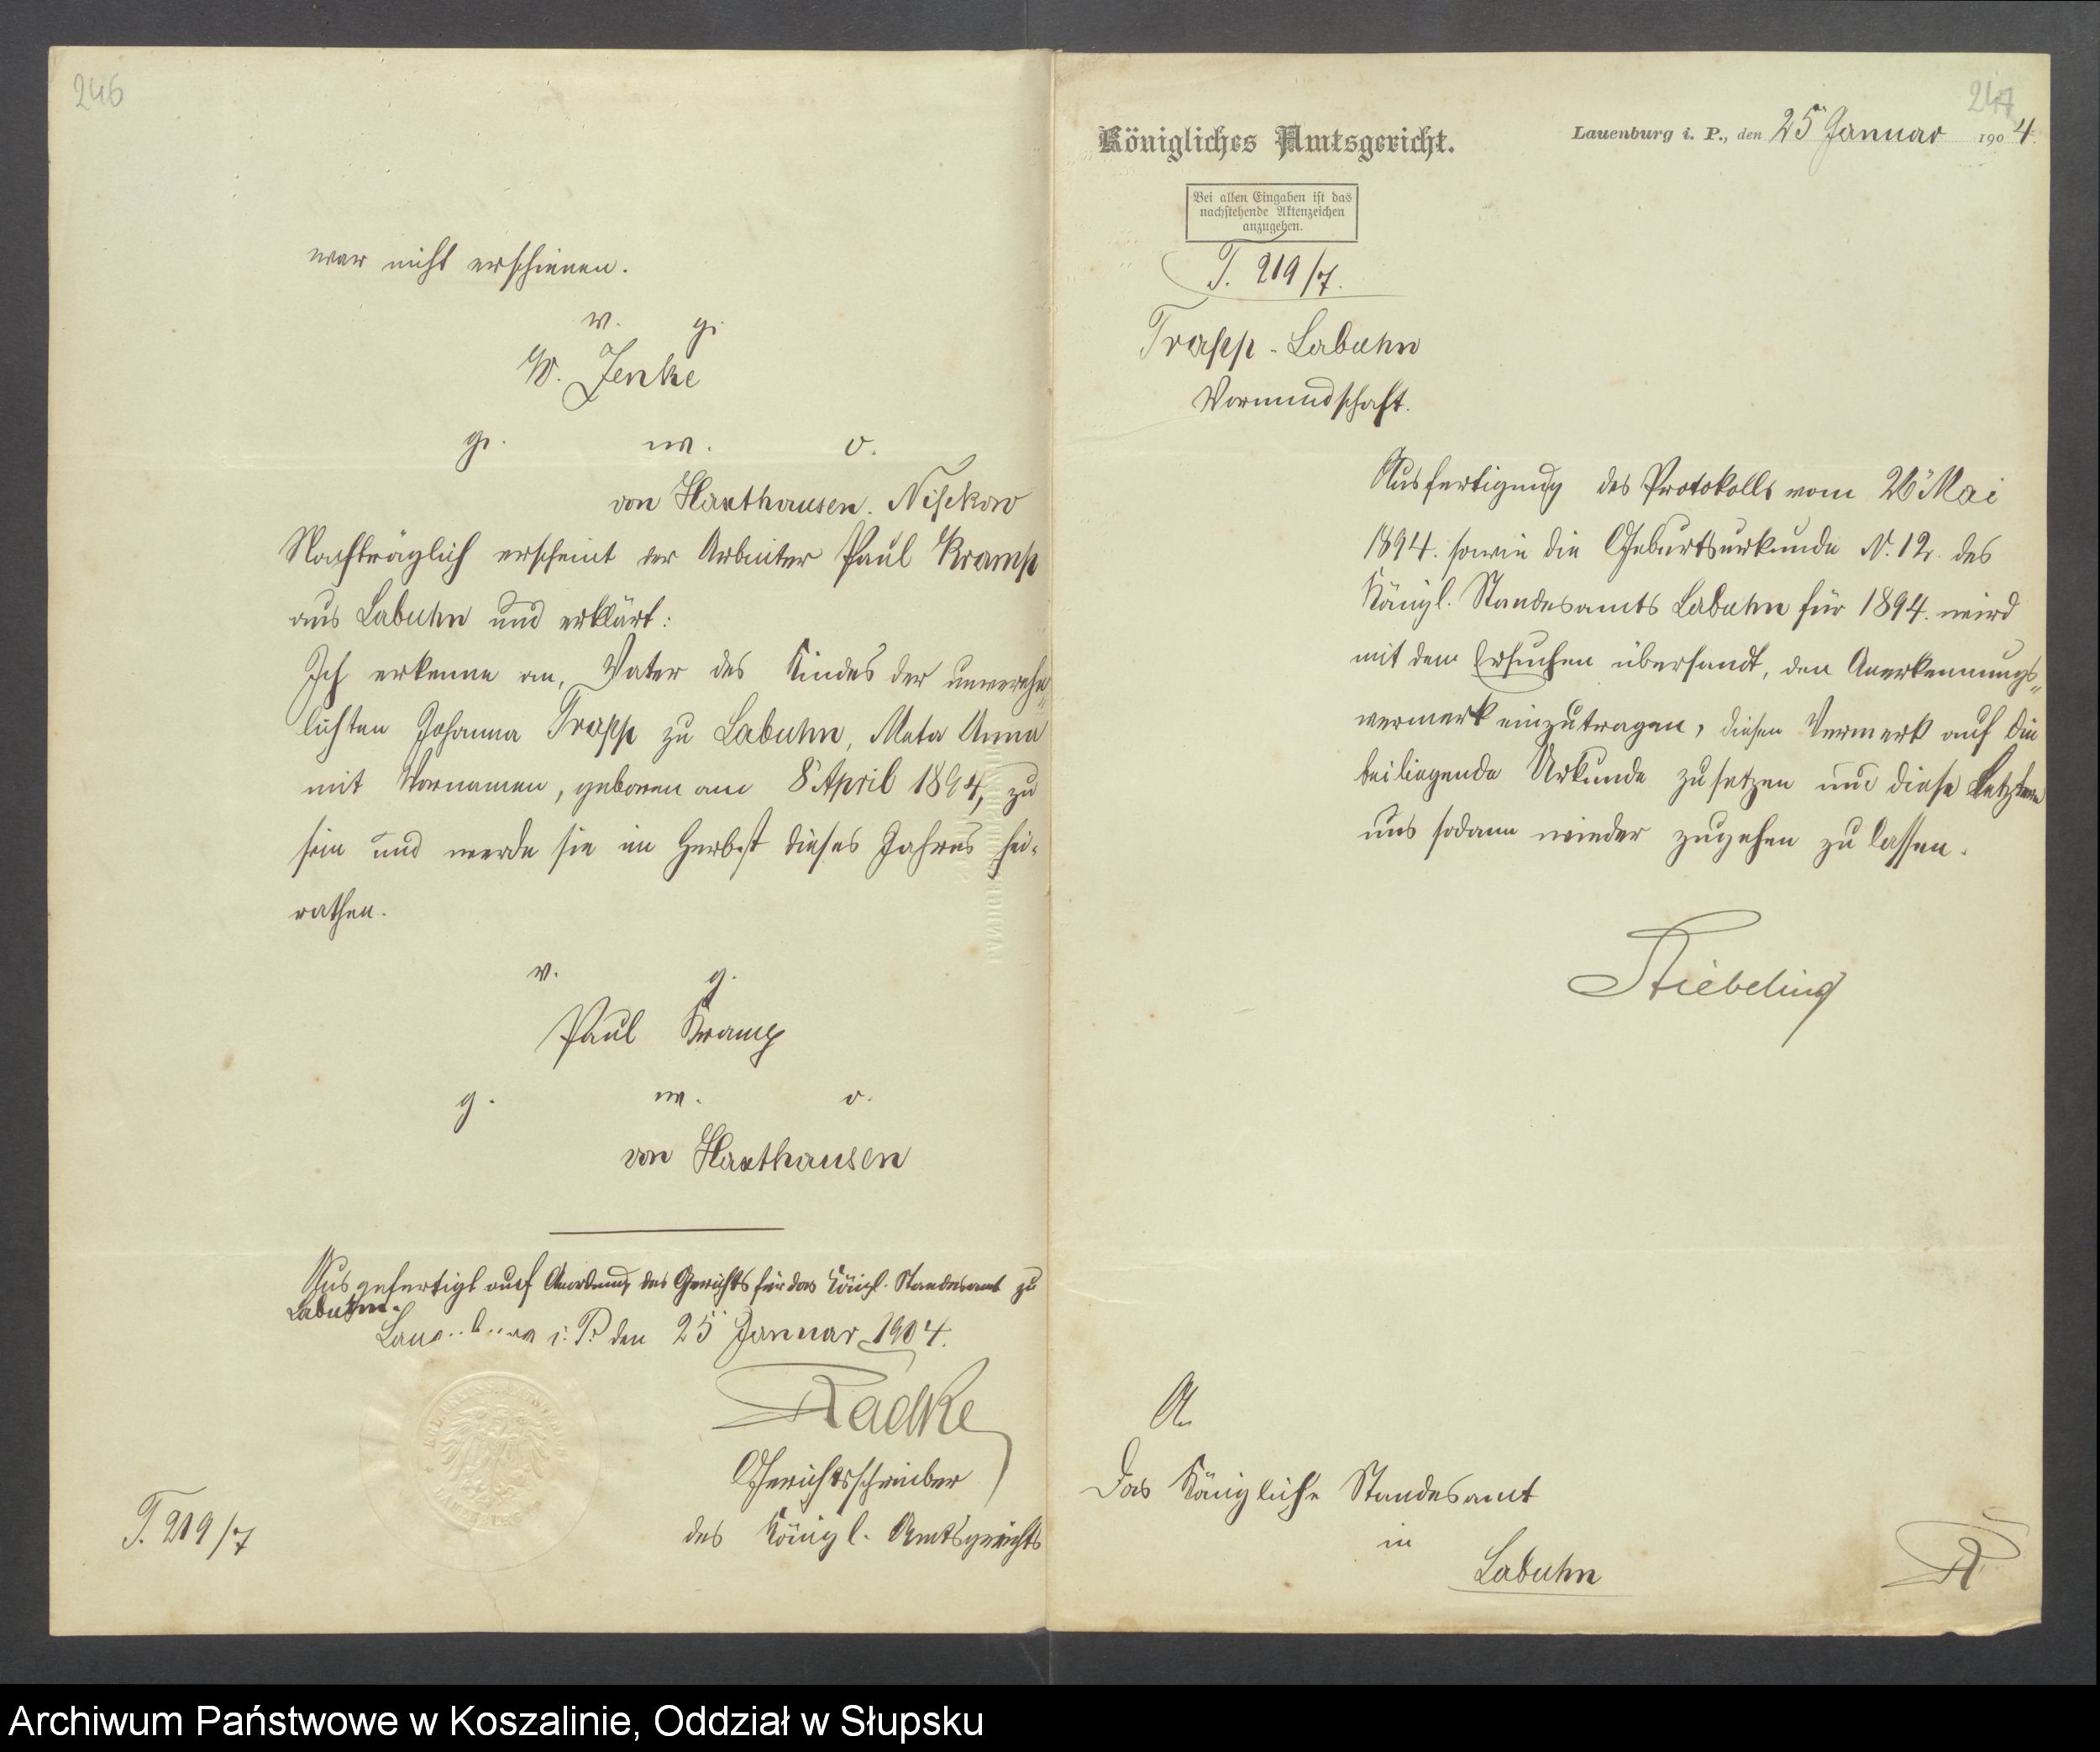 246
war nicht erschienen.
v. g.
W. Jenke
g. w. o.
von Haxthausen. Nischow
Nachträglich erscheint der Arbeiter Paul Kramp
aus Labuhn und erklärt:
Ich erkenne an, Vater des Kindes der unverehe-
lichten Johanna Trapp zu Labuhn, Meta Anna
mit Vornamen, geboren am 8ͭ April 1894, zu
sein und werde sie im Herbst dieses Jahres hei-
rathen.
v. g.
Paul Kramp
g. w. o.
von Haxthausen
Ausgefertigt auf Anordnung des Gerichts für das Königl. Standesamt zu
Labuhn.
Lauenburg i. P. den 25 Januar 1904.
Radke
Gerichtsschreiber
des Königl. Amtsgerichts
T. 219/7
247
Königliches Amtsgericht.
Lauenburg i. P., den 25 Januar 1904.
Bei allen Eingaben ist das
nachstehende Aktenzeichen
anzugeben.
T. 219/7.
Trapp-Labuhn
Vormundschaft.
Ausfertigung des Protokolls vom 26 Mai
1894. sowie die Geburtsurkunde N. 12. des
Königl. Standesamts Labuhn für 1894. wird
mit dem Ersuchen übersandt, den Anerkennungs-
vermerk einzutragen, diesen Vermerk auf die
beiliegende Urkunde zu setzen und diese Letztere
uns sodann wieder zugehen zu lassen.
Stiebeling
An
Das Königliche Standesamt
in
Labuhn
R
Archiwum Państwowe w Koszalinie, Oddział w Słupsku